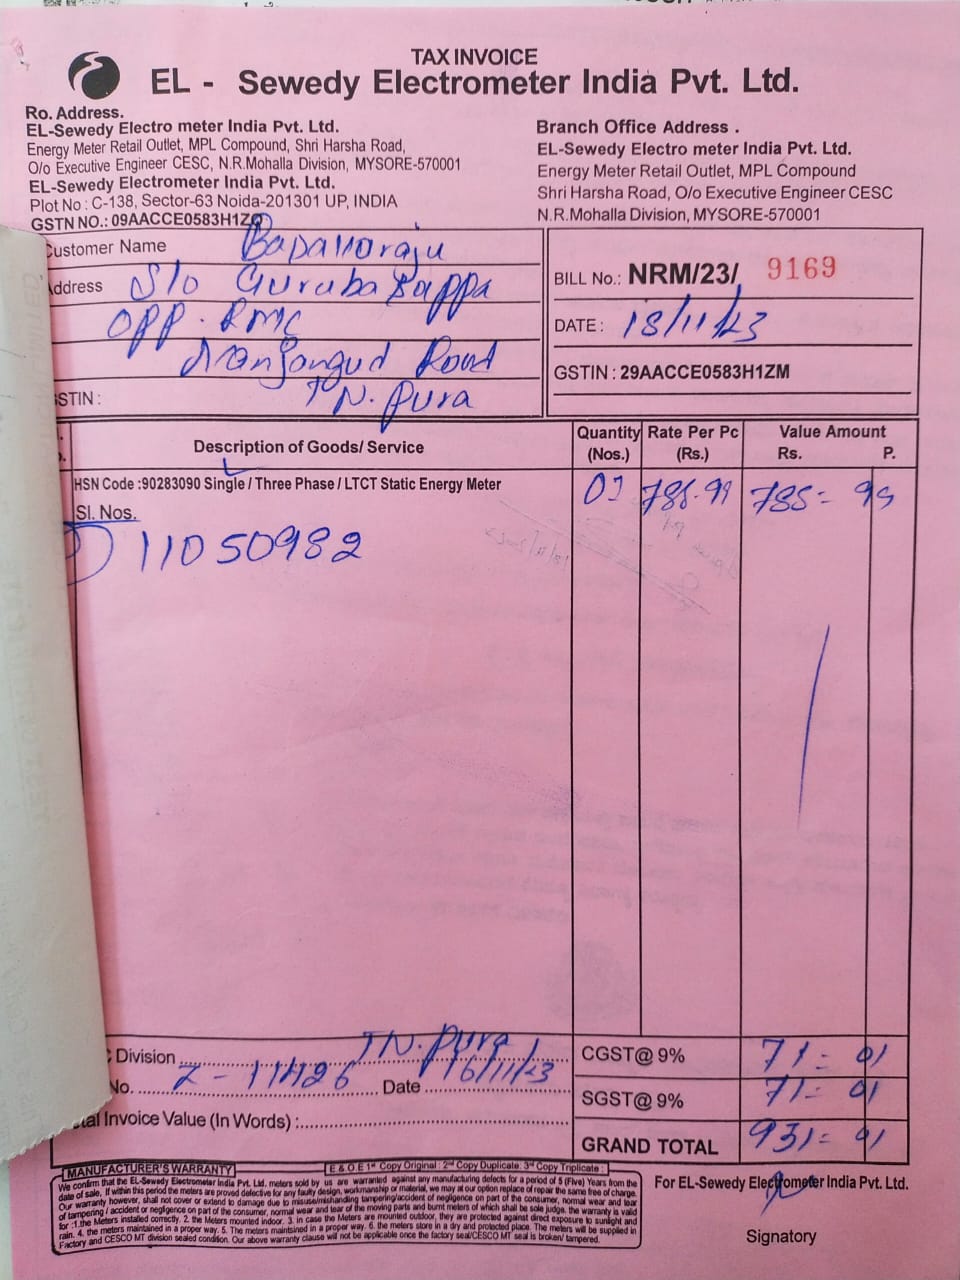 TAX INVOICE
EL - Sewedy Electrometer India Pvt. Ltd.
Ro. Address.
EL-Sewedy Electro meter India Pvt. Ltd.
Energy Meter Retail Outlet, MPL Compound, Shri Harsha Road,
O/o Executive Engineer CESC, N.R.Mohalla Division, MYSORE-570001
EL-Sewedy Electrometer India Pvt. Ltd.
Plot No : C-138, Sector-63 Noida-201301 UP, INDIA
GSTN NO.: 09AACCE0583H1Z
Branch Office Address .
EL-Sewedy Electro meter India Pvt. Ltd.
Energy Meter Retail Outlet, MPL Compound
Shri Harsha Road, O/o Executive Engineer CESC
N.R.Mohalla Division, MYSORE-570001
Customer Name
Address S/o
OPP. RMC
Nanjangud Road
GSTIN : T N. Pura
BILL No.: NRM/23/ 9169
DATE : 18/11/23
GSTIN : 29AACCE0583H1ZM
Description of Goods/ Service Quantity (Nos.) Rate Per Pc (Rs.) Value Amount Rs. P.
HSN Code :90283090 Single / Three Phase / LTCT Static Energy Meter 01 788.99 788= 99
Sl. Nos.
11050982
Division TN. Pura
No. Z-11426 Date 16/11/23
Invoice Value (In Words) :
CGST@ 9% 71= 01
SGST@ 9% 71= 01
GRAND TOTAL 931= 01
MANUFACTURER'S WARRANTY
E & O.E 1st Copy Original : 2nd Copy Duplicate: 3rd Copy Triplicate :
We confirm that the EL-Sewedy Electrometer India Pvt. Ltd. meters sold by us are warranted against any manufacturing defects for a period of 5 (Five) Years from the
date of sale, If within this period the meters are proved defective for any faulty design, workmanship or material, we may at our option replace of repair the same free of charge.
Our warranty however, shall not cover or extend to damage due to misuse/mishandling tampering/accident of negligence on part of the consumer, normal wear and tear
of tampering / accident or negligence on part of the consumer, normal wear and tear of the moving parts and burnt meters of which shall be sole judge. the warranty is valid
for :1.the Meters installed correctly. 2. the Meters mounted indoor. 3. in case the Meters are mounted outdoor, they are protected against direct exposure to sunlight and
rain. 4. the meters maintained in a proper way. 5. The meters maintsined in a proper way. 6. the meters store in a dry and protected place. The meters will be supplied in
Factory and CESCO MT division sealed condition. Our above warranty clause will not be applicable once the factory seal/CESCO MT seal is broken/ tampered.
For EL-Sewedy Electrometer India Pvt. Ltd.
Signatory